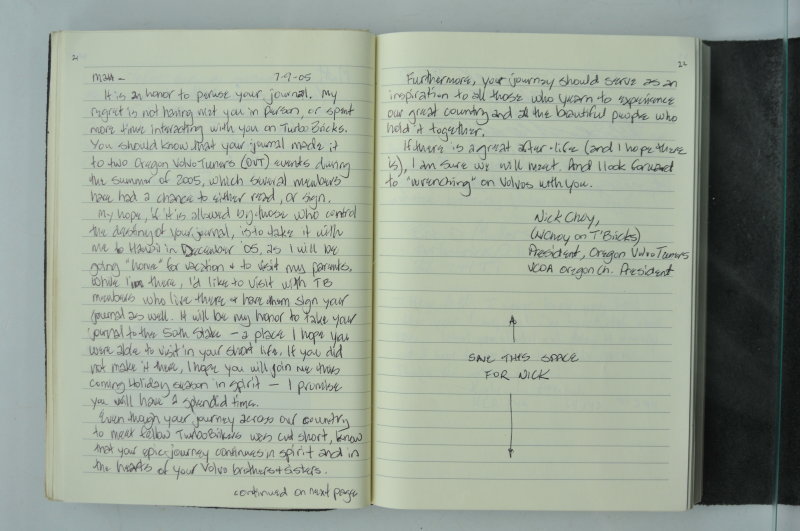 21
Matt - 7-9-05
It is an honor to peruse your journal. My
regret is not having met you in person, or spent
more time interacting with you on Turbo Bricks.
You should know that your journal made it
to two Oregon Volvo Tuners (OVT) events during
the summer of 2005, which several members
have had a chance to either read, or sign.
My hope, if it is allowed by those who control
the destiny of your journal, is to take it with
me to Hawaii in December '05, as I will be
going "home" for vacation + to visit my parents.
While I'm there, I'd like to visit with TB
members who live there + have them sign your
journal as well. It will be my honor to take your
journal to the 50th State - a place I hope you
were able to visit in your short life. If you did
not make it there, I hope you will join me this
coming Holiday season in spirit - I promise
you will have a splendid time.
Even though your journey across our country
to meet fellow TurboBrickers was cut short, know
that your epic-journey continues in spirit and in
the hearts of your Volvo brothers + sisters.
continued on next page
22
Furthermore, your journey should serve as an
inspiration to all those who yearn to experience
our great country and all the beautiful people who
hold it together.
If there is a great after-life (and I hope there
is), I am sure we will meet. And I look forward
to "wrenching" on Volvos with you.
Nick Choy,
(NChoy on T'Bricks)
President, Oregon Volvo Tuners
VCOA Oregon Ch. President
SAVE THIS SPACE
FOR NICK